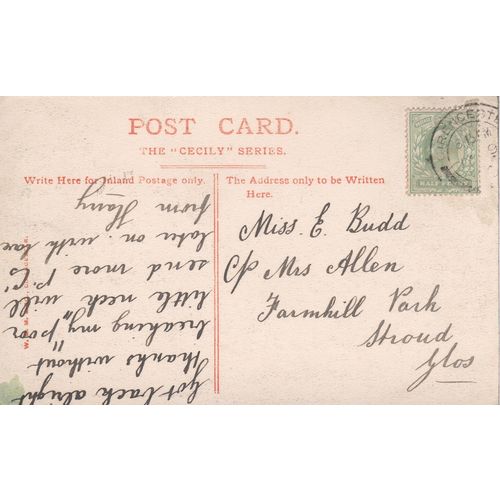 POST CARD.
THE "CECILY" SERIES.
Write Here for Inland Postage only.
The Address only to be Written
Here.
HALF PENNY
Miss. E. Budd
C/o Mrs Allen
Farmhill Park
Stroud
Glos
Got back alright
thanks without
breaking my "poor
little neck will
send more p.c's
later on. with love
from Harry